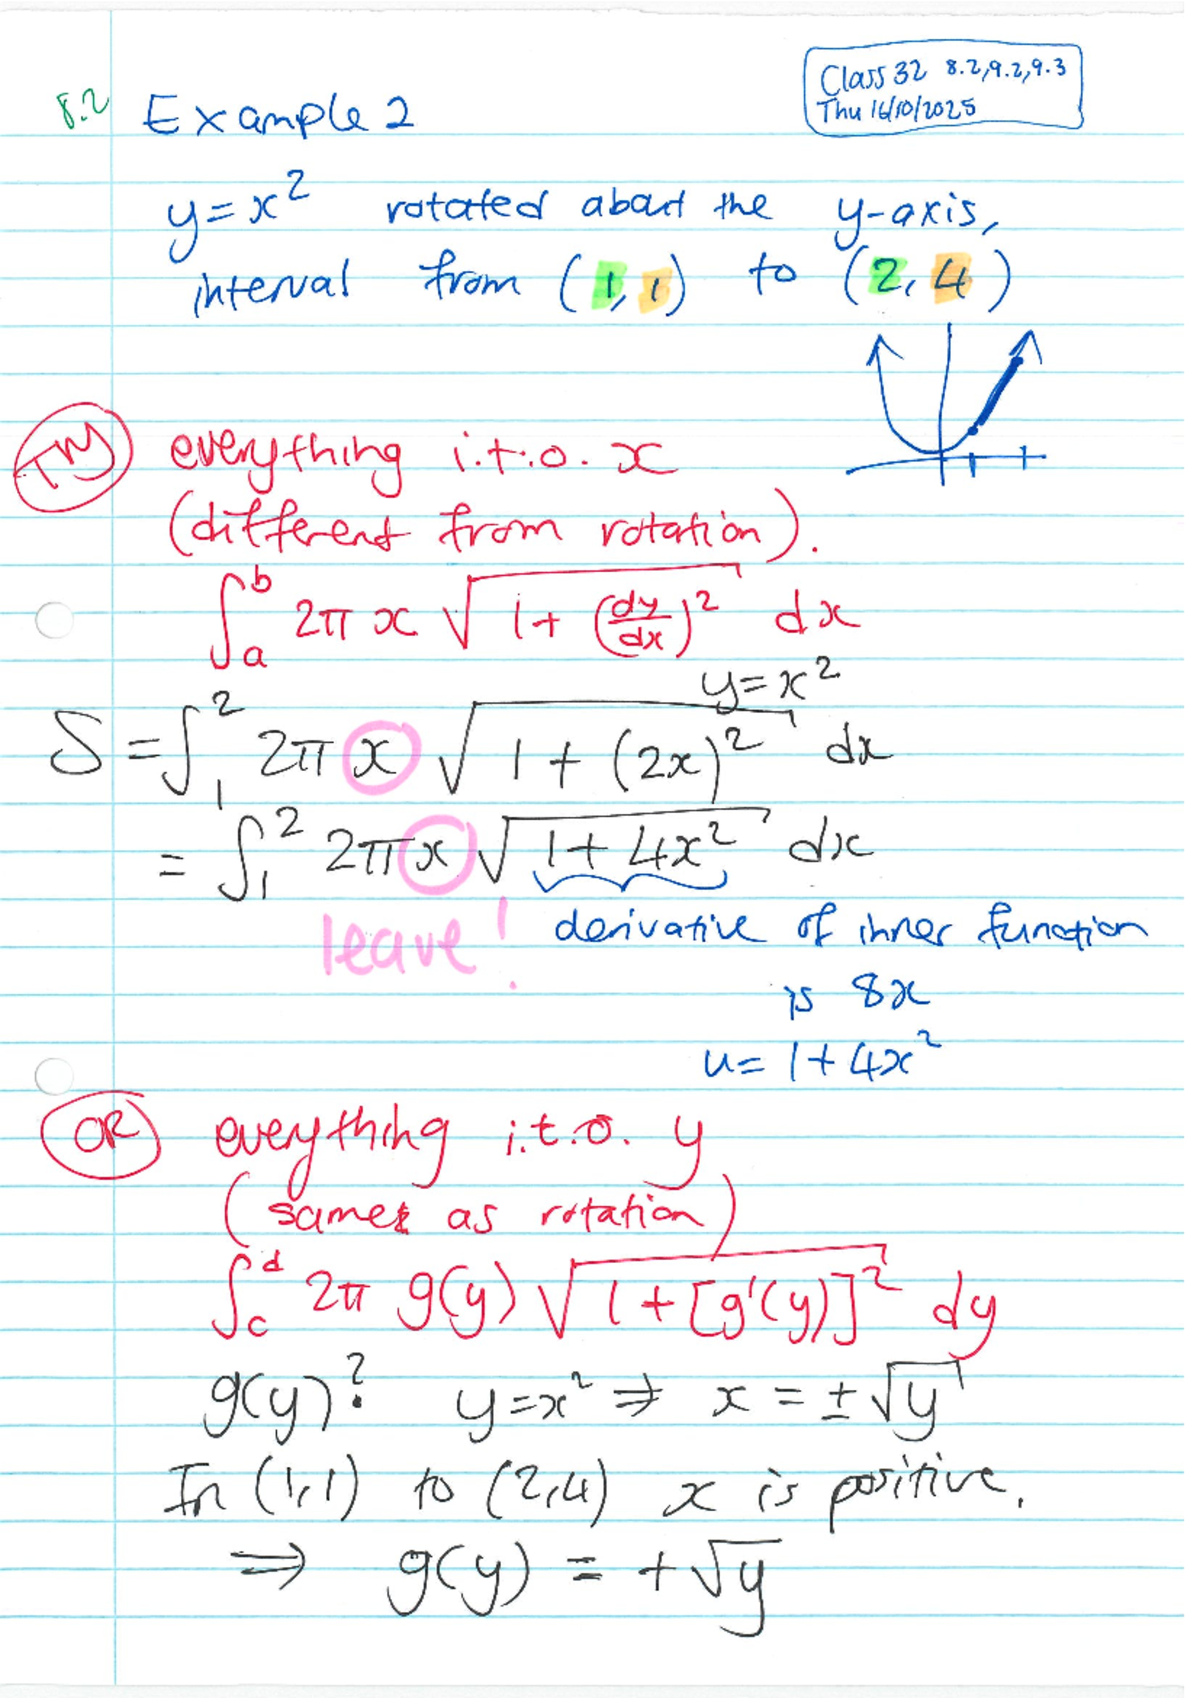 Class 32 8.2, 9.2, 9.3
Thu 16/10/2025
8.2 Example 2
y = x² rotated about the y-axis,
interval from (1, 1) to (2, 4)
TRY everything i.t.o. x
(different from rotation).
∫_a^b 2π x √(1 + (dy/dx)²) dx
y = x²
S = ∫_1^2 2π x √(1 + (2x)²) dx
= ∫_1^2 2π x √(1 + 4x²) dx
leave! derivative of inner function
is 8x
u = 1 + 4x²
OR everything i.t.o. y
(same as rotation)
∫_c^d 2π g(y) √(1 + [g'(y)]²) dy
g(y)? y = x² ⇒ x = ±√y
In (1,1) to (2,4) x is positive.
⇒ g(y) = +√y